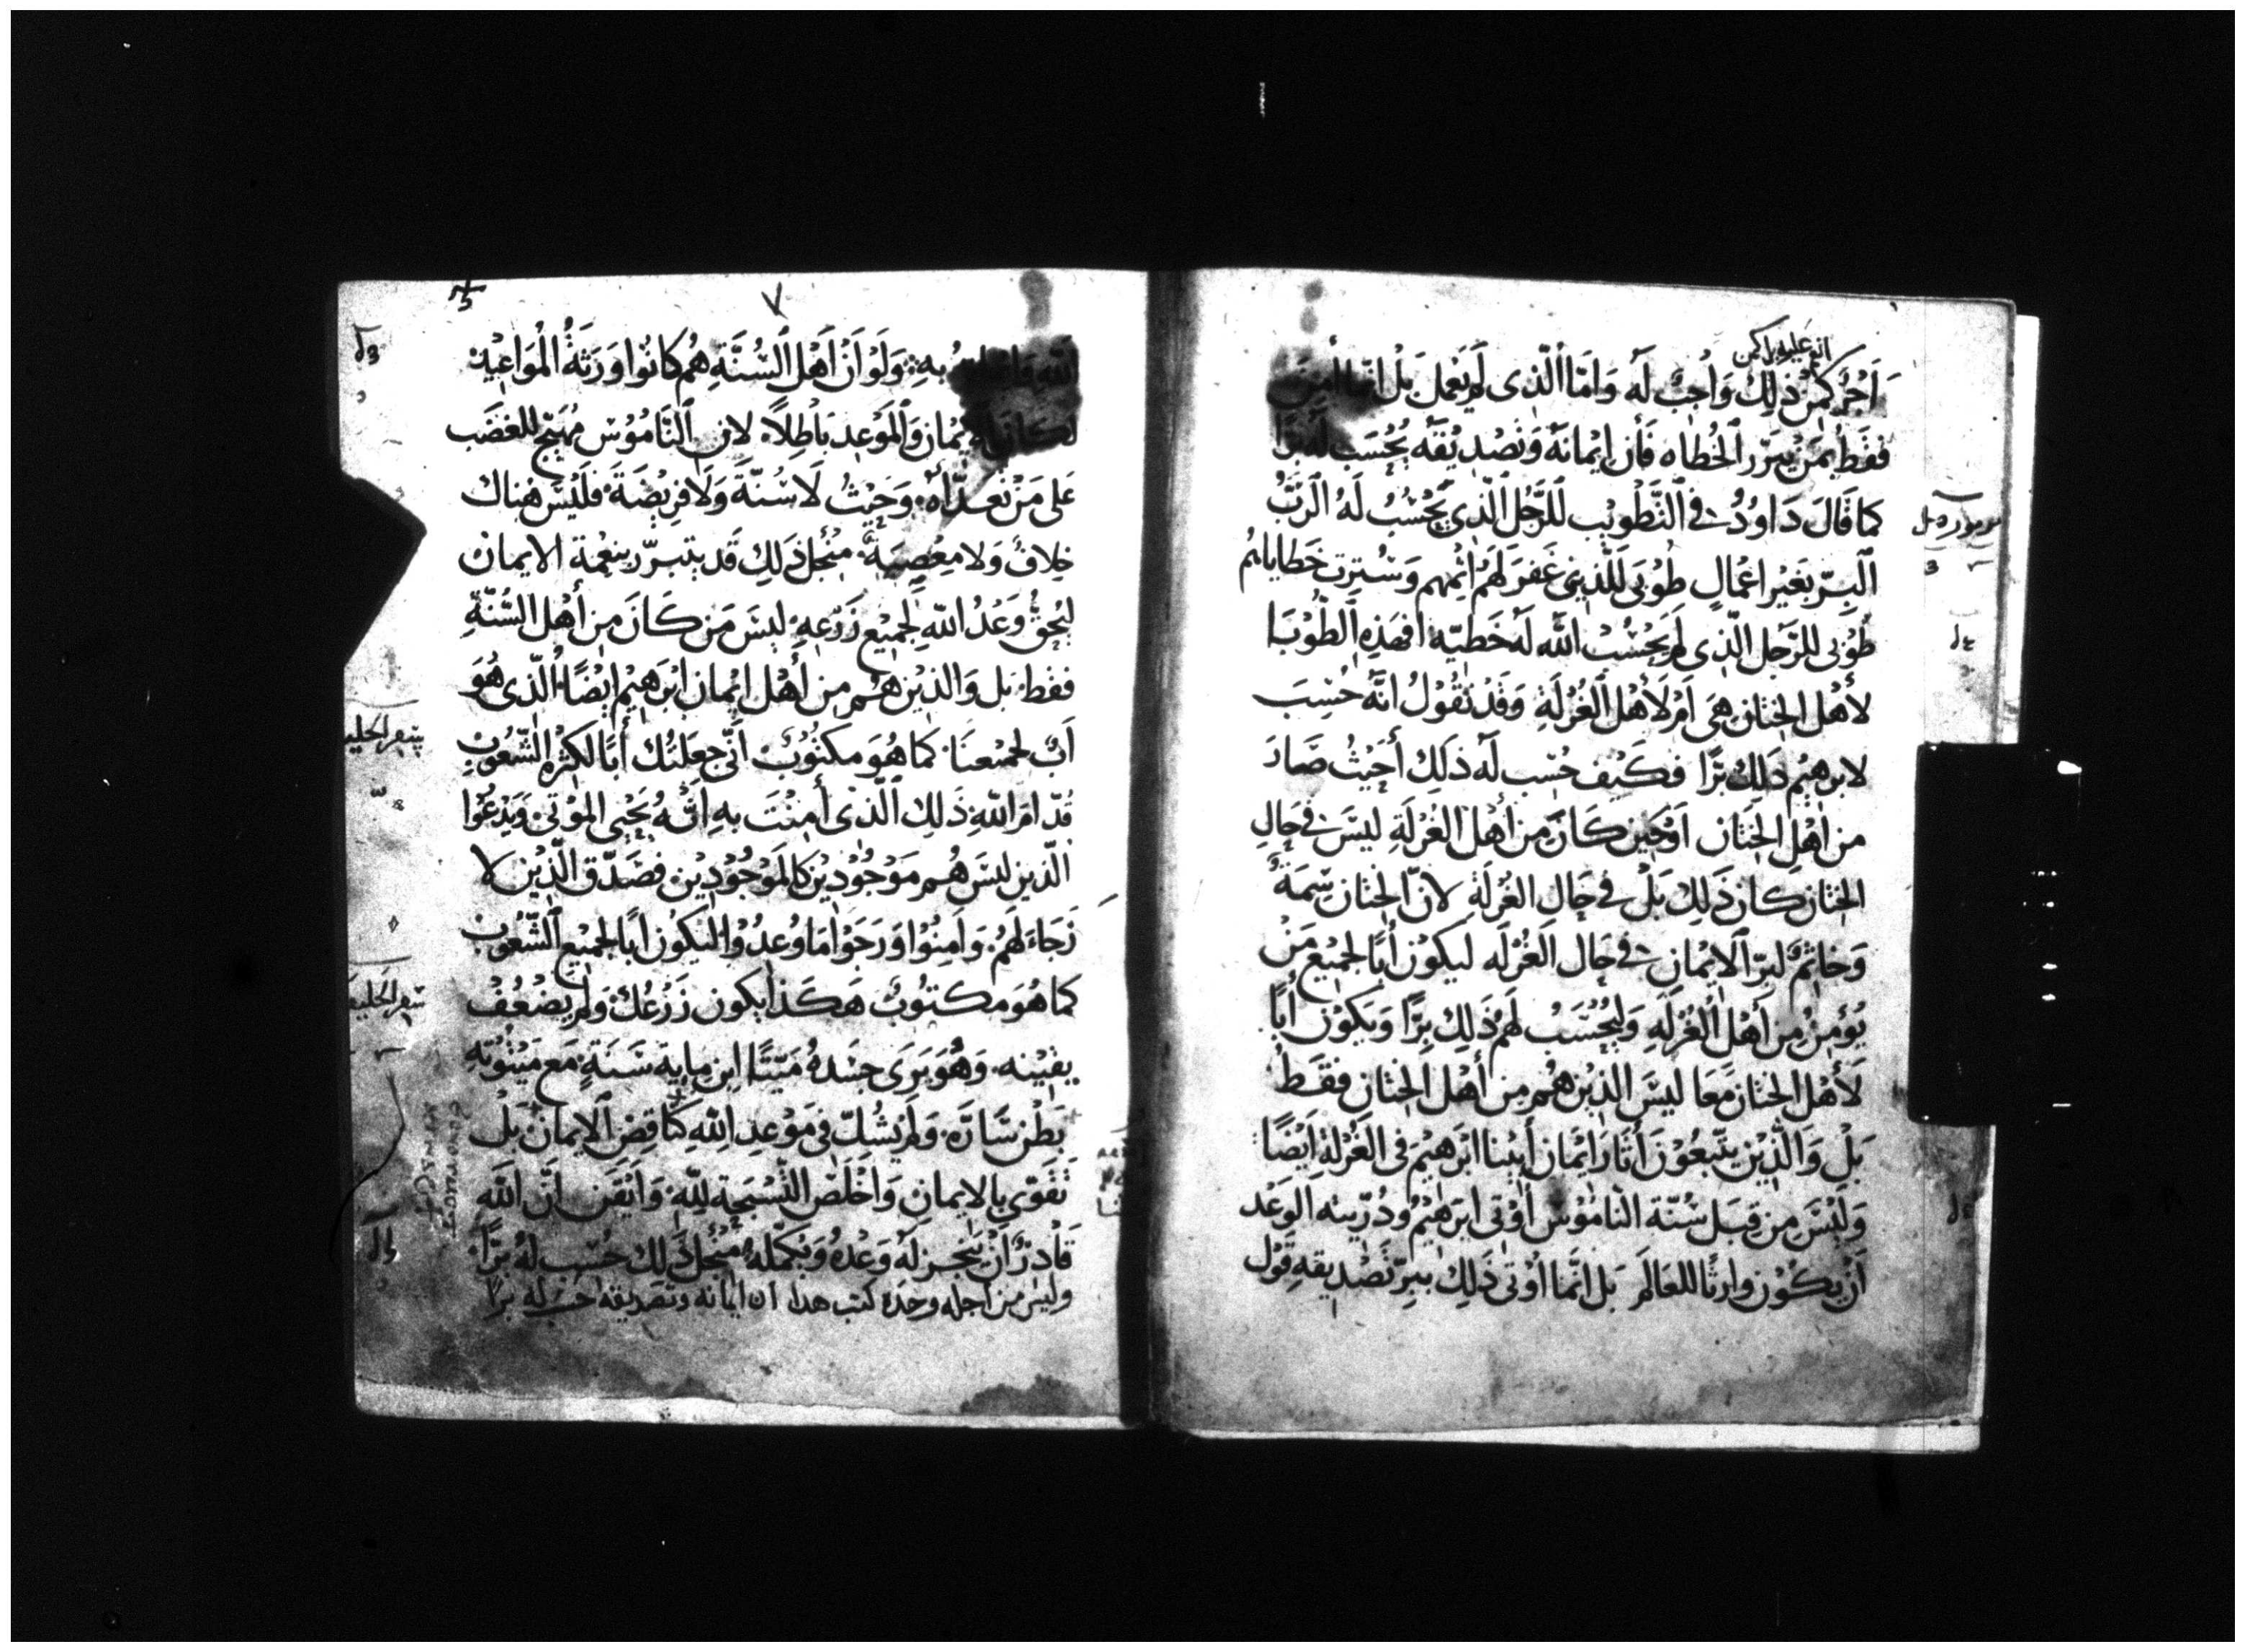 انه عليه كمن
أَجْرُ كَمَنْ ذَلِكَ وَاجِبٌ لَه وَامَّا الَّذِى لَم يَعْمَل بَلْ انما أمِنَ
فقَط بمَنْ يبَرّر الخُطاه فَأن ايْمانهُ وَتصْديْقَهُ يُحْسَب لَهُ برًّا
كما قَالَ دَاوُدُ في التَّطْويْب للرَّجُل الَّذِي يَحْسُبُ لَهُ الرَبُّ
مزمور
البِرّ بغَيْر اعْمالٍ طُوْبَى للَّذِين غفرَ لَهُم اثمهم وَسُتِرت خَطاياهُم
طُوْبى للرَّجُل الَّذِى لَم يَحْسُبْ الله لَهُ خَطيّه افهَذِهِ الطُّوْبَا
لأهْل الخِتَان هِىَ اَمْ لَأهْل الغُرْلَةِ وَقَدْ نَقُوْلُ انَّهُ حُسِبَ
لابرهِيْم ذلك برًّا فكَيْف حُسِب لَه ذلِكَ أحَيْثُ صَارَ
من اهْلِ الخِتان اوْحَيْن كانَ مِن أهْل الغُرْلَةِ ليْسَ في حَالِ
الخِتان كان ذَلِكَ بَلْ في حَالِ الغُرْلَةِ لانّ الختان سِمَةٌ
وَخاتِمٌ لبِرّ الايْمانِ في حَال الغُرْلَه ليَكوْن أبًا لجمَيْع مَنْ
يُوْمِنُ مِن أهْل الغُرْلَهِ وَليُحْتسَبْ لهُم ذَلِكَ بِرًّا وَيَكُوْن أبًا
لَأهْل الختان مَعَا ليسَ الذيْن هُم مِن أهْل الخِتان فقَط
بَلِ وَالَّذِيْن يتّبعُوْنَ أثَارَ ايْمَان أبيْنا ابْرَهيْم في الغُرْلَةِ أيْضًا
وَليْسَ مِن قِبَل سُنّة النّامُوْس أُوْتى ابْرَهِيْمُ وذُرّيته الوَعْد
أنْ يكُوْن وارثًا للعَالَم بَل انّما أُوْتى ذَلِكَ ببِرّ تَصْديقهِ قَوْل
الله به وَلَوْ اَنَّ اَهْلَ السُّنَّةِ هُم كانُوا وَرَثَةُ المَوَاعِيْدِ
لكان ايْمان وَالمَوْعِد بَاطِلاً لان النَّامُوْسَ مُهَيّج للغضَب
عَلى مَنْ تعَدّاهُ وَحَيْثُ لَا سُنّةَ وَلَا فرِيْضَةَ فلَيْسَ هُناك
خِلافٌ وَلا معْصِيَة مِنْ أجْل ذَلِكَ قَد يتبرّر بنعْمة الايمان
ليُحِقُّ وَعْدُ الله لجَمِيْع زَرْعِهِ ليسَ مَن كانَ مِن أهْل السُّنّةِ
ففط بَل وَالذيْن هُم مِن أَهْل ايْمان ابْرَهيْم ايْضًا الّذى هُوَ
أبٌ لجمْيعنَا كما هُوَ مكتُوْبٌ انّى جعَلتُك أبًا لكثْرةِ الشّعُوْبِ
سفر الخليقة
قدّام الله ذَلِكَ الّذى أمنْتَ بهِ انَّهُ يُحْيى المَوْتى وَيَدْعُوا
الّذين ليسَ هُم مَوْجُوْدِيْن كالمَوْجُوْديْن فصَدّق الّذيْن لا
رَجَاءَ لهُم وَامِنُوا وَرَجَوْا مَا وُعِدُوْا ليَكُون ابًا لجمِيْع الشّعُوْب
كما هُوَ مكتوُبٌ هَكَذا يكون زَرْعُكَ وَلم يضْعُفْ
سفر الخليقة
يقيْنه وَهُوَ يَرَى جسَدهُ مَيّتًا ابن مِايةِ سَنَةٍ مَع مَيْتوُتةِ
بَطْن سَارَّه وَلَم يشُكّ فى مَوْعِدِ الله كنَاقِص الايمان بَلْ
تقَوّى بالايمانِ وَاخْلَصَ التّسْبِحَة للّه وَايْقَن انَّ الله
قَادرٌ أنْ يُنْجِز لَه وَعْدهُ وَيُكمّله مِنْ أجْل ذَلِكَ حُسِب لهُ برًّا
وليس من اجله وحده كتب هدا ان ايمانه وتصديقه حسب له برًا